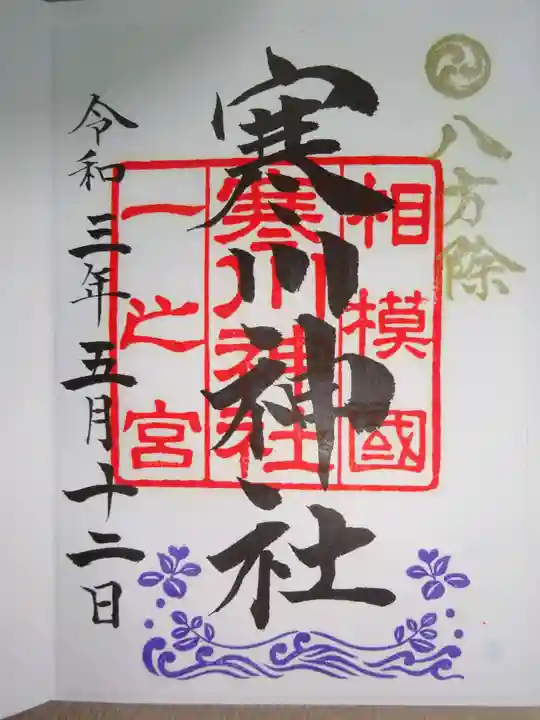 八方除
寒川神社
相模國
寒川神社
一之宮
令和三年五月十二日